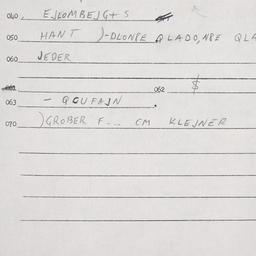 040, EJKOMBEJG+S
050 HANT )-DLONPE QLADO,NPE QLA
060 JEDER
062 $
063 - QOUFAJN .
070 )GROBER F... CM KLEJNER